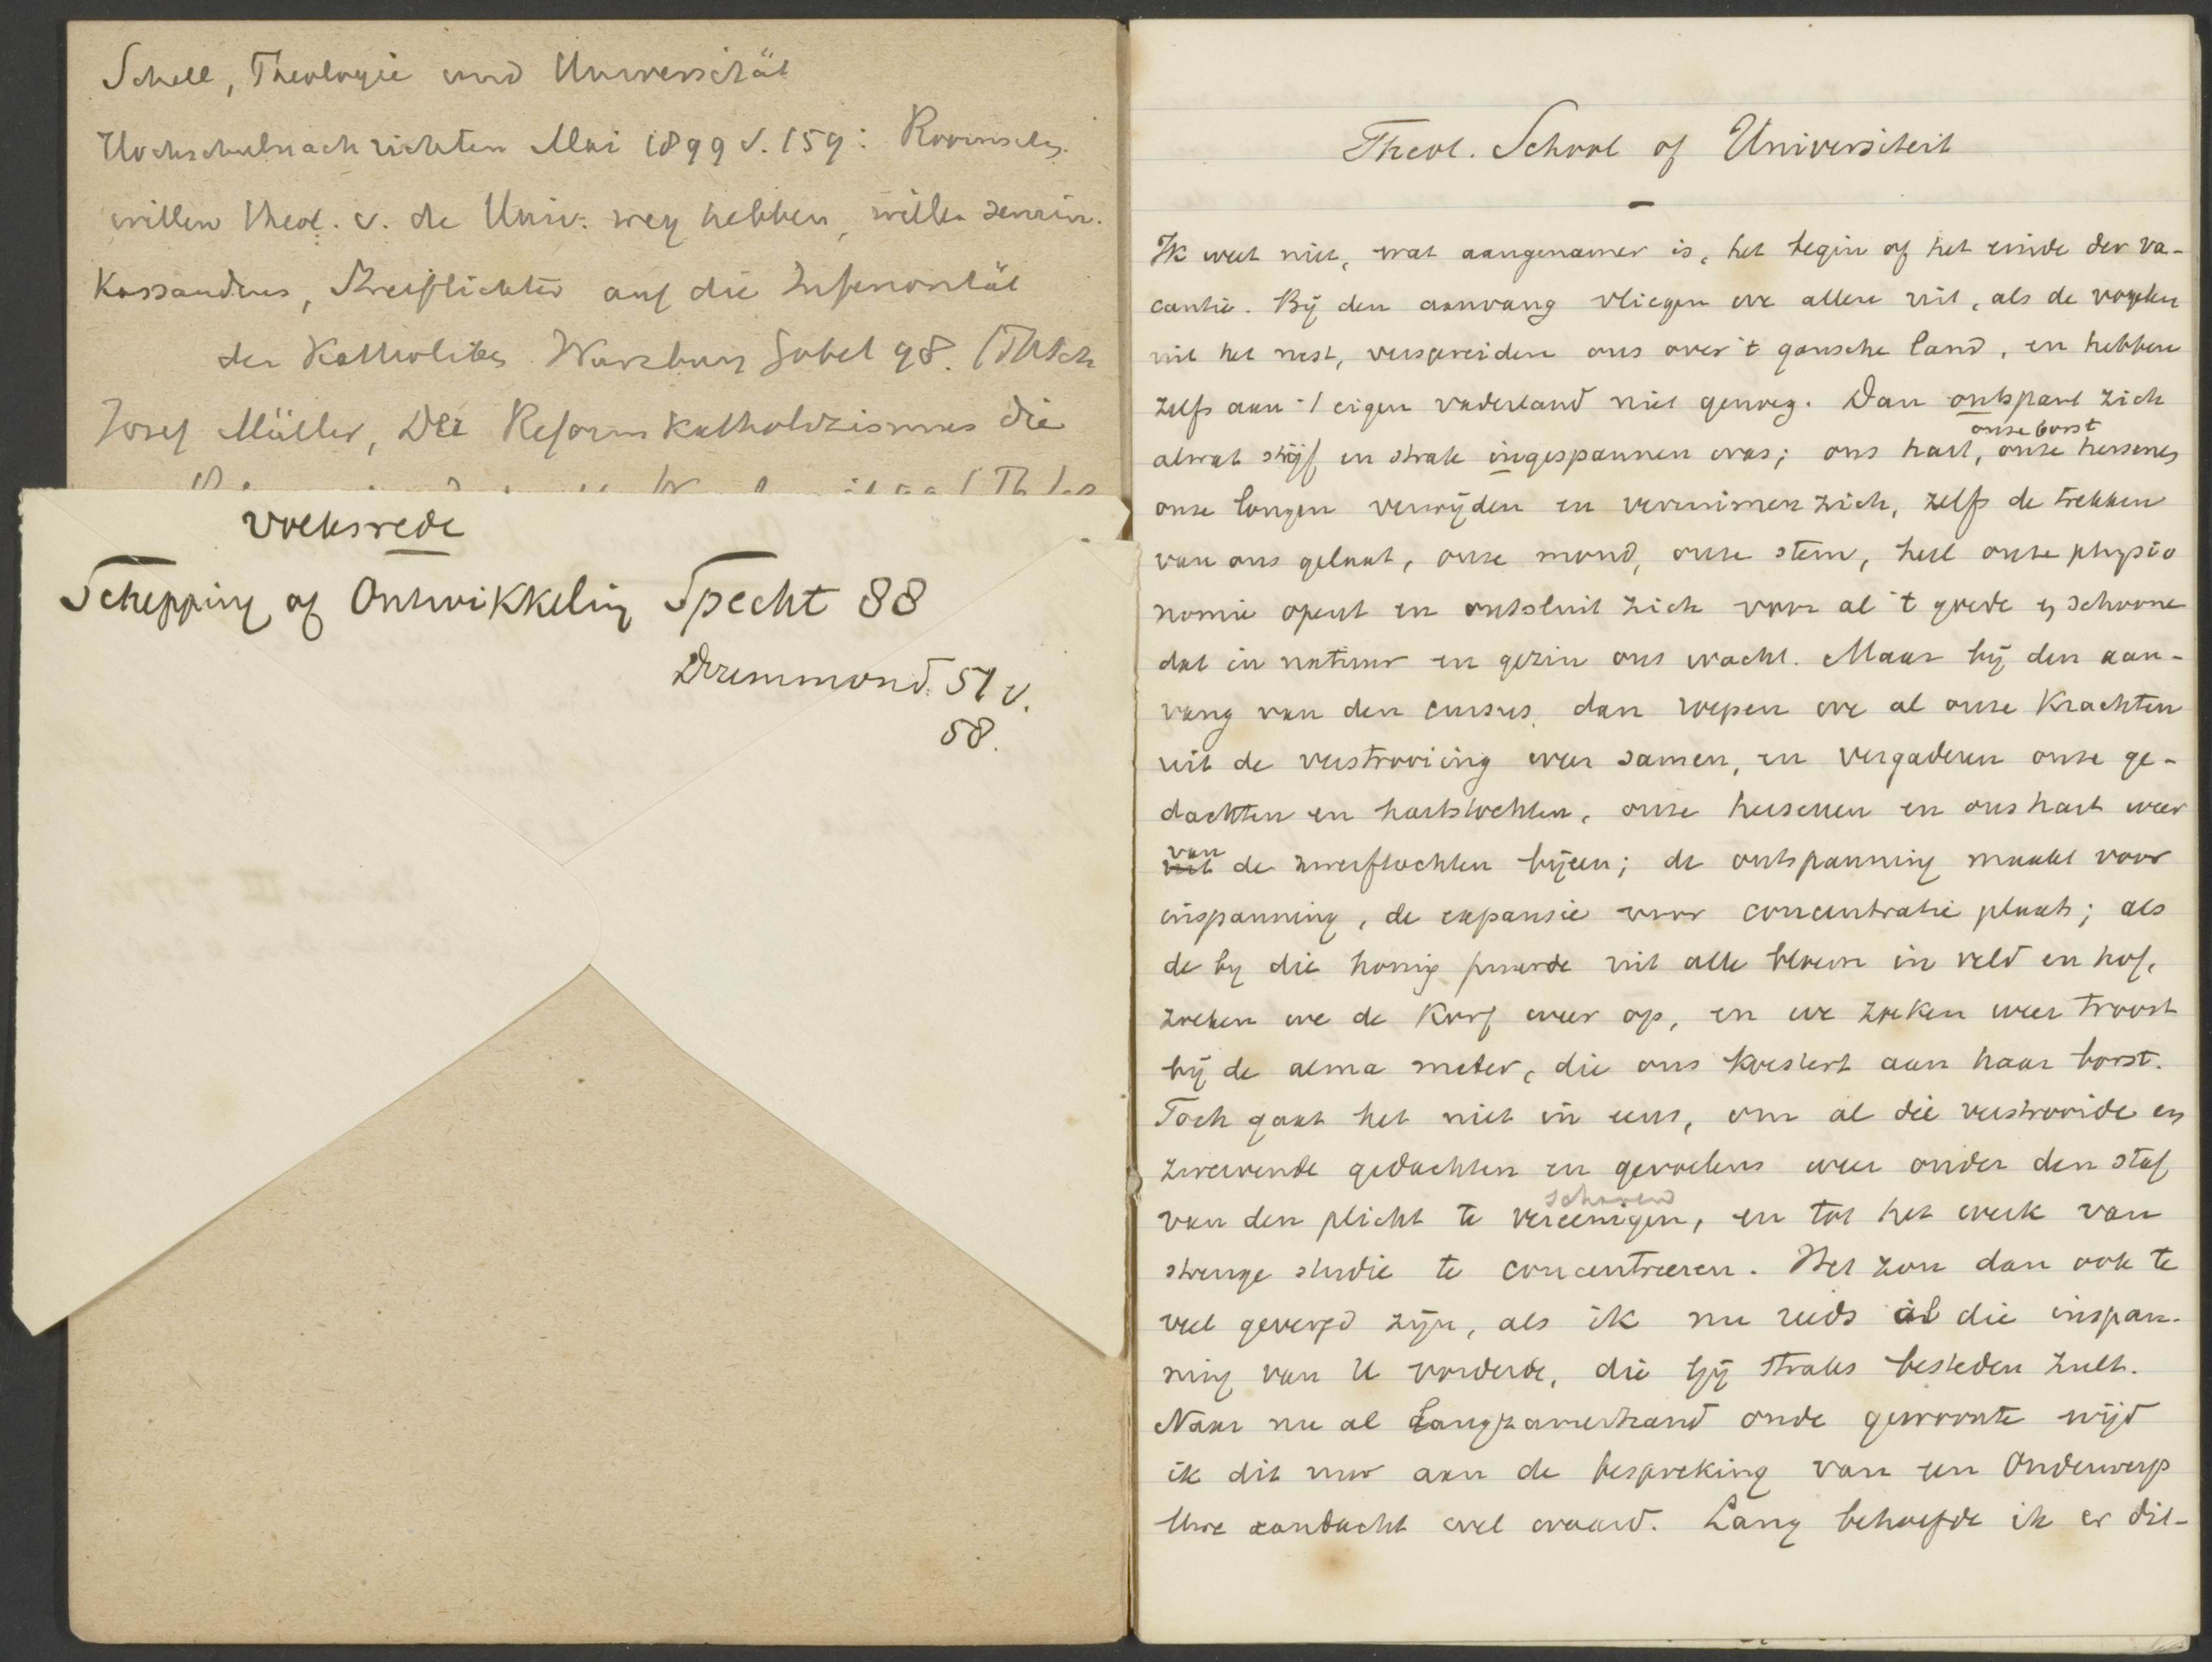 Schell, Theologie und Universität
Hochschulnachrichten Mai 1899 S. 159: Roomschen
willen theol. v. de Univ. weg hebben, willen semin.
Kassandrus, Streiflichter auf die Inferiorität
der Katholiken Würzburg Göbel 98. (ThLch
Josef Müller, Der Reformkatholizismus die
volksrede
Schepping of Ontwikkeling Specht 88
Drummond. 51 v.
58.
Theol. School of Universiteit
Ik weet niet, wat aangenamer is, het begin of het einde der va-
cantie. Bij den aanvang vliegen we allen uit, als de vogelen
uit het nest, verspreiden ons over 't gansche land, en hebben
zelfs aan 't eigen vaderland niet genoeg. Dan ontspant zich
onze borst
alwat stijf en strak ingespannen was; ons hart, onze hersenen
onze longen verwijden en verruimen zich, zelfs de trekken
van ons gelaat, onze mond, onze stem, heel onze physio
nomie opent en ontsluit zich voor al 't goede en schoone
dat in natuur en gezin ons wacht. Maar bij den aan-
vang van den cursus, dan roepen we al onze Krachten
uit de verstrooiing weer samen, en vergaderen onze ge-
dachten en hartstochten, onze hersenen en ons hart weer
van
uit de zwerftochten bijeen; de ontspanning maakt voor
inspanning, de expansie voor concentratie plaats; als
de bij die honig puurde uit alle bloem in veld en hof,
zoeken we de Korf weer op, en we zoeken weer troost
bij de alma mater, die ons koestert aan haar borst.
Toch gaat het niet in eens, om al die verstrooide en
zwervende gedachten en gevoelens weer onder den staf
scharen
van den plicht te vereenigen, en tot het werk van
strenge studie te concentreeren. Het zou dan ook te
veel gevergd zijn, als ik nu reeds al die inspan-
ning van U vorderde, die gij straks besteden zult.
Naar nu al langzamerhand oude gewoonte wijd
ik dit uur aan de bespreking van een Onderwerp
Uwe aandacht wel waard. Lang behoefde ik er dit-